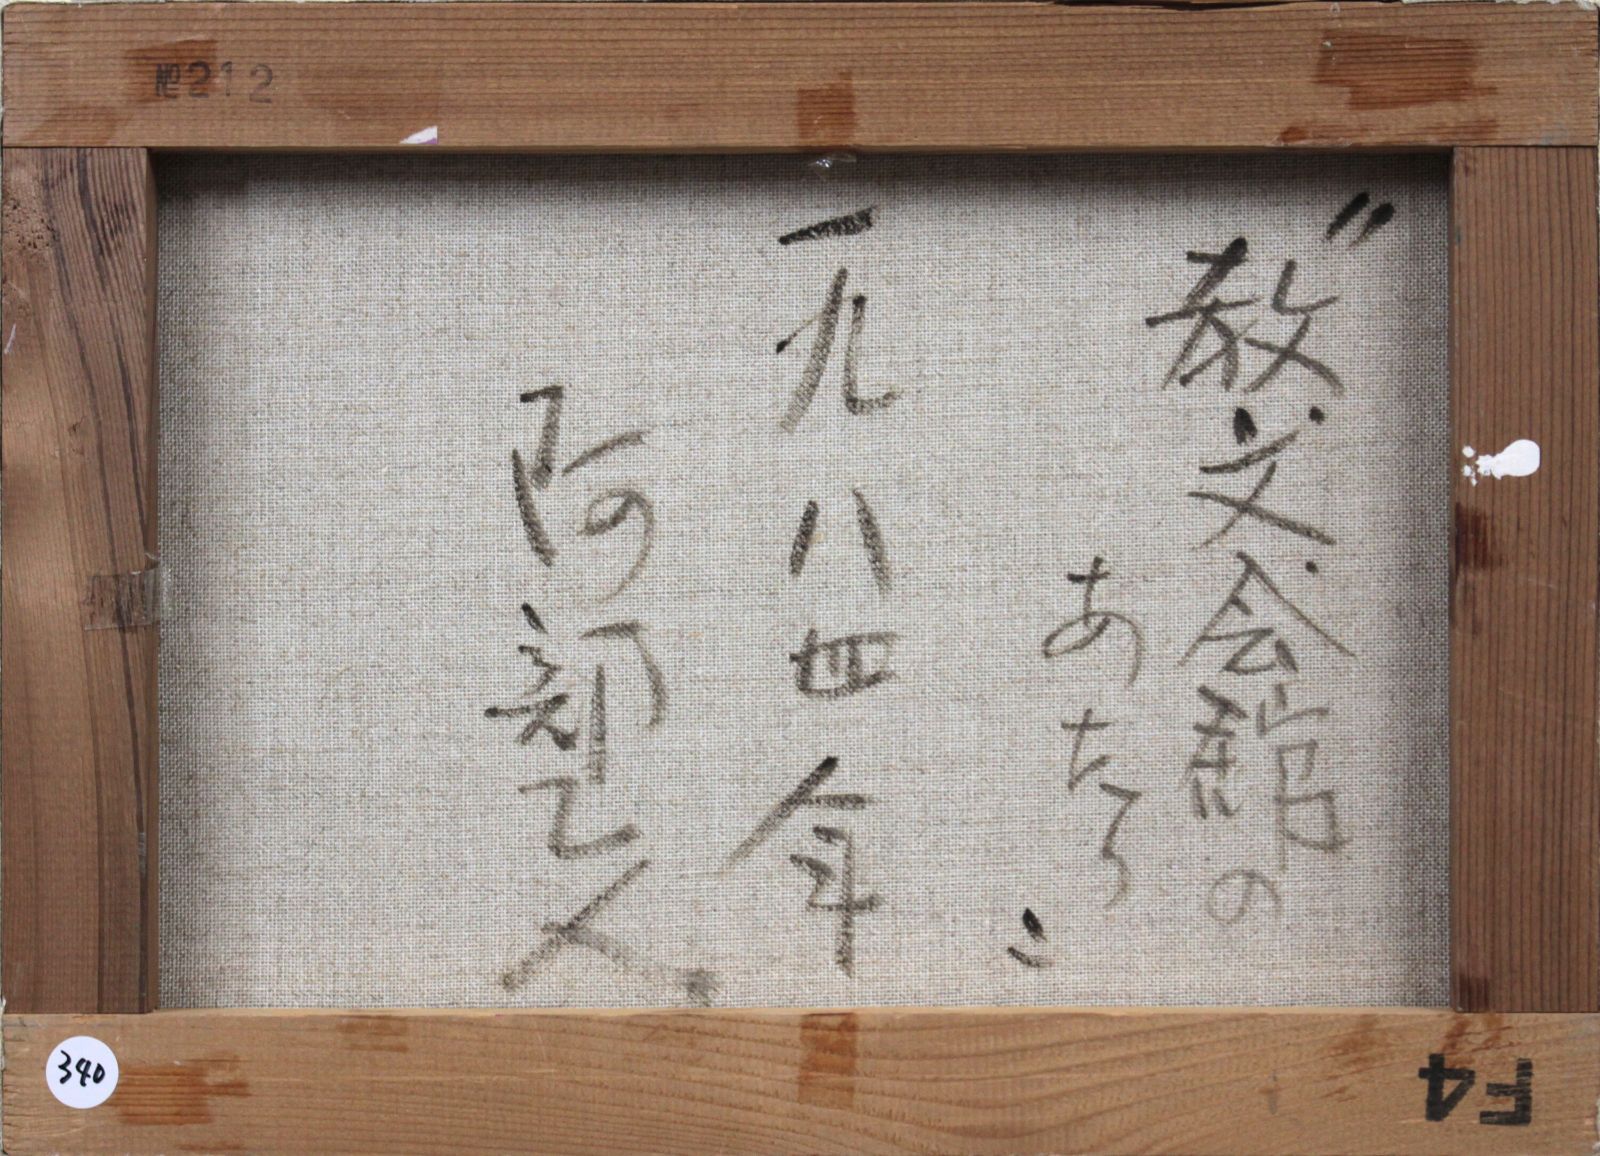 №212
〃教文会館の
あたり〃
一九八四年
阿部乙人
340
F4